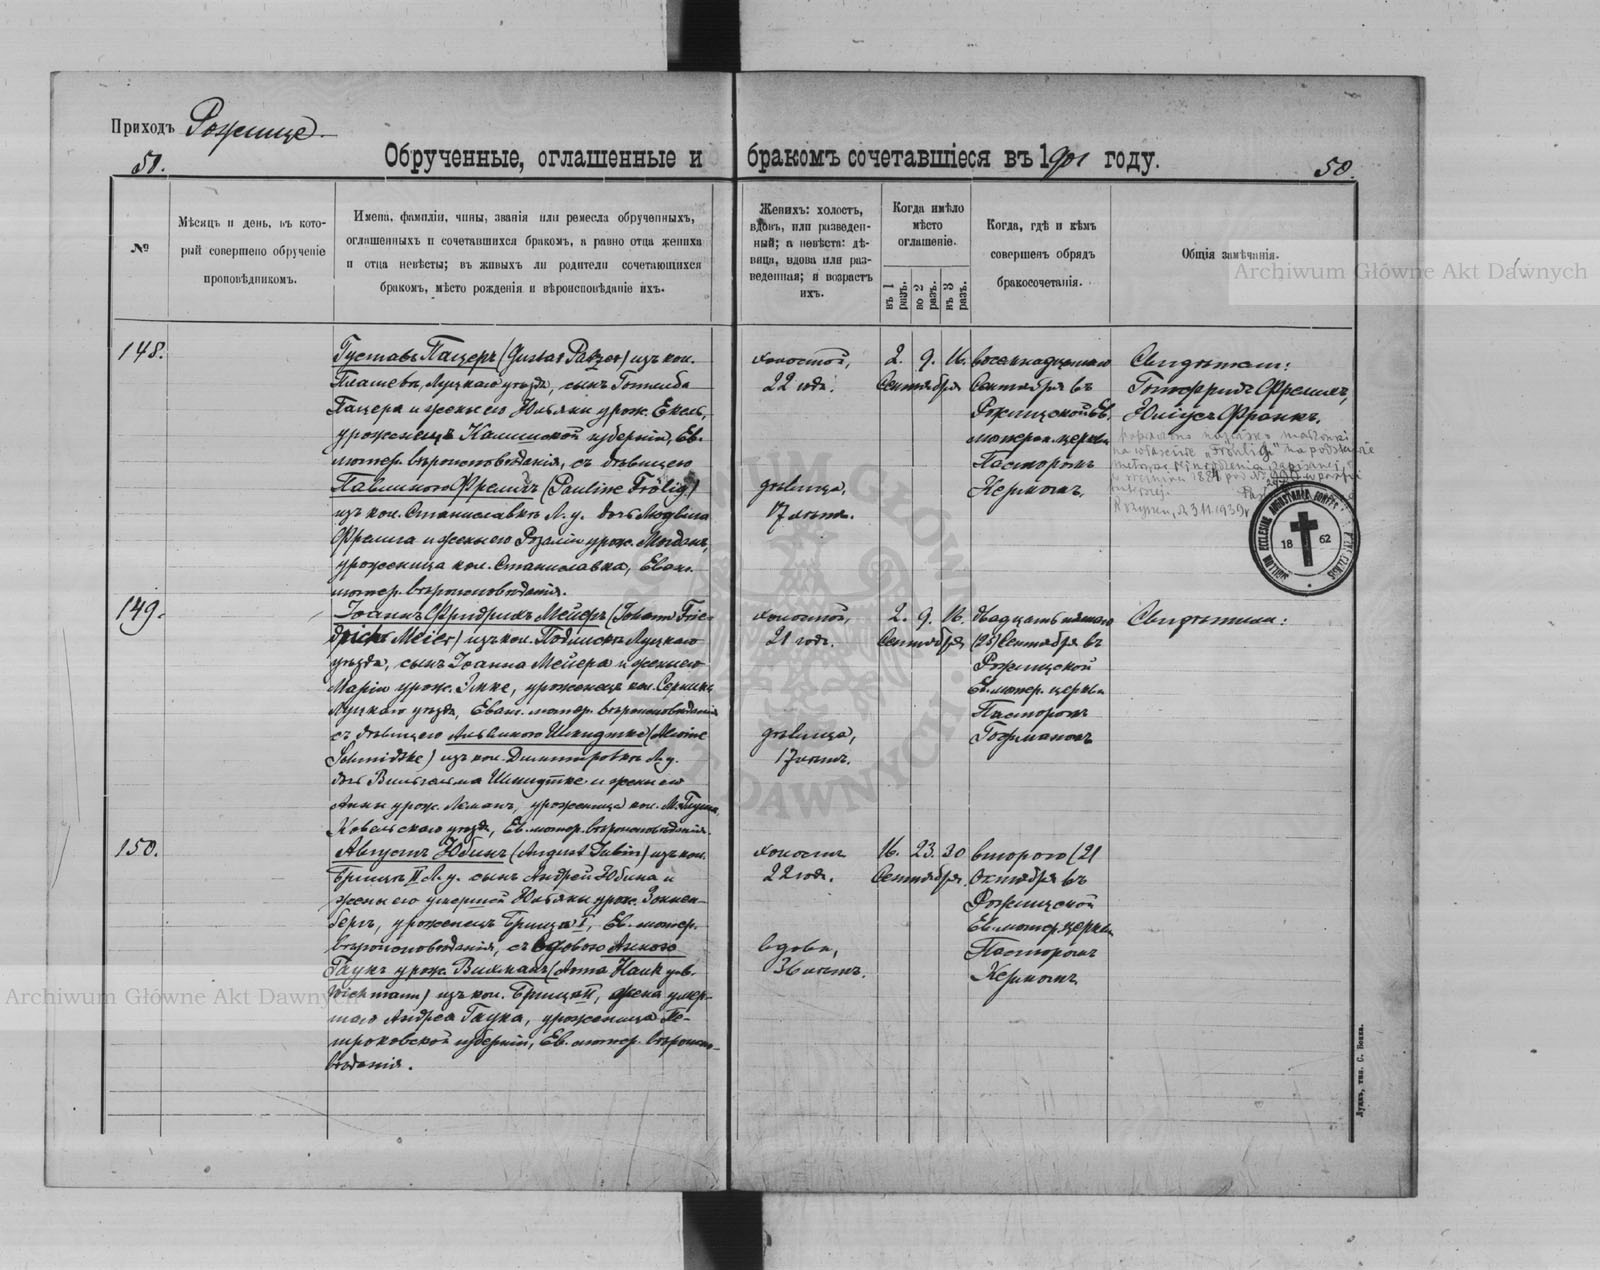 Приходъ Рожище
51.
Обрученные, оглашенные и бракомъ сочетавшіеся въ 1901 году.
50.
№
Мѣсяцъ и день, въ кото-
рый совершено обрученіе
проповѣдникомъ.
Имена, фамиліи, чины, званія или ремесла обрученныхъ,
оглашенныхъ и сочетавшихся бракомъ, а равно отца жениха
и отца невѣсты; въ живыхъ ли родители сочетающихся
бракомъ, мѣсто рожденія и вѣроисповѣданіе ихъ.
Женихъ: холостъ,
вдовъ, или разведен-
ный; а невѣста: дѣ-
вица, вдова или раз-
веденная; и возрастъ
ихъ.
Когда имѣло
мѣсто
оглашеніе.
въ 1 разъ.
во 2 разъ.
въ 3 разъ.
Когда, гдѣ и кѣмъ
совершенъ обрядъ
бракосочетанія.
Общія замѣчанія.
Archiwum Główne Akt Dawnych
148.
Густавъ Пацеръ (Gustav Patzer) изъ кол.
Плашева, Луцкаго уѣзда, сынъ Готлиба
Пацера и жены его Юльяны урож. Екель,
уроженецъ Калишской губерніи, Ев.
лютер. вѣроисповѣданія, съ дѣвицею
Павлиною Фрелигъ (Pauline Frölig)
изъ кол. Станиславка Л. у. дочь Людвига
Фрелига и жены его Розаліи урож.
уроженица кол. Станиславка, Еван.
лютер. вѣроисповѣданія.
холостой,
22 года.
дѣвица,
17 лѣтъ.
2. 9. 16.
Сентября
восемнадцатаго
Сентября въ
Рожищской Ев.
лютеран. церкви
Пасторомъ
Керномъ.
Свидѣтели:
Готфридъ Фрелихъ,
Юліусъ Франкъ.
nazwisko małżonki
na właściwe "Fröhlich" na podstawie
3.11.1939r
18 62
149.
Іоаннъ Фридрихъ Мейеръ (Johann Frie-
drich Meier) изъ кол. Подлиски Луцкаго
уѣзда, сынъ Іоанна Мейера и жены его
Маріи урож. Эмке, уроженецъ кол. Серники
Луцкаго уѣзда, Еван. лютер. вѣроисповѣданія
съ дѣвицею Альвиною Шмидтке (Alwine
Schmidtke) изъ кол. Дмитровка Л. у.
дочь Вильгельма Шмидтке и жены его
Анны урож. Леманъ, уроженица кол.
Ковельскаго уѣзда, Ев. лютер. вѣроисповѣданія.
холостой,
21 годъ.
дѣвица,
17 лѣтъ.
2. 9. 16.
Сентября
двадцать пятаго
(25) Сентября въ
Рожищской
Ев. лютер. церкви
Пасторомъ
Гофманомъ
Свидѣтели:
150.
Августъ Юбинъ (August Jubin) изъ кол.
Брищъ II Л. у. сынъ Андрея Юбина и
жены его умершей Юльяны урож. Зоннен-
бергъ, уроженецъ Брищъ I, Ев. лютер.
вѣроисповѣданія, съ вдовою Анною
Гаукъ урож. Вихманъ (Anna Hauk geb.
Wichmann) изъ кол. Брищъ II, жена умер-
шаго Андрея Гаука, уроженица Пе-
троковской губерніи, Ев. лютер. вѣроиспо-
вѣданія.
холостъ
22 года.
вдова,
36 лѣтъ.
16. 23. 30
Сентября.
второго (2)
Октября въ
Рожищской
Ев. лютер. церкви
Пасторомъ
Керномъ
Archiwum Główne Akt Dawnych
Луцкъ, тип. С. Бокка.